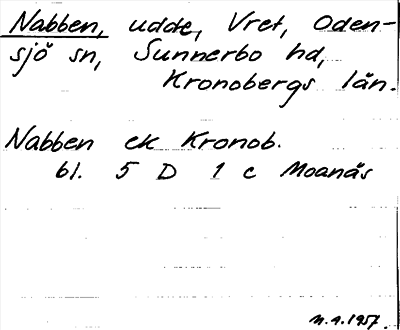 Nabben, udde, Vret, Oden-
sjö sn, Sunnerbo hd,
Kronobergs län.
Nabben ek Kronob.
bl. 5 D 1 c Moanäs
M.A. 1957.